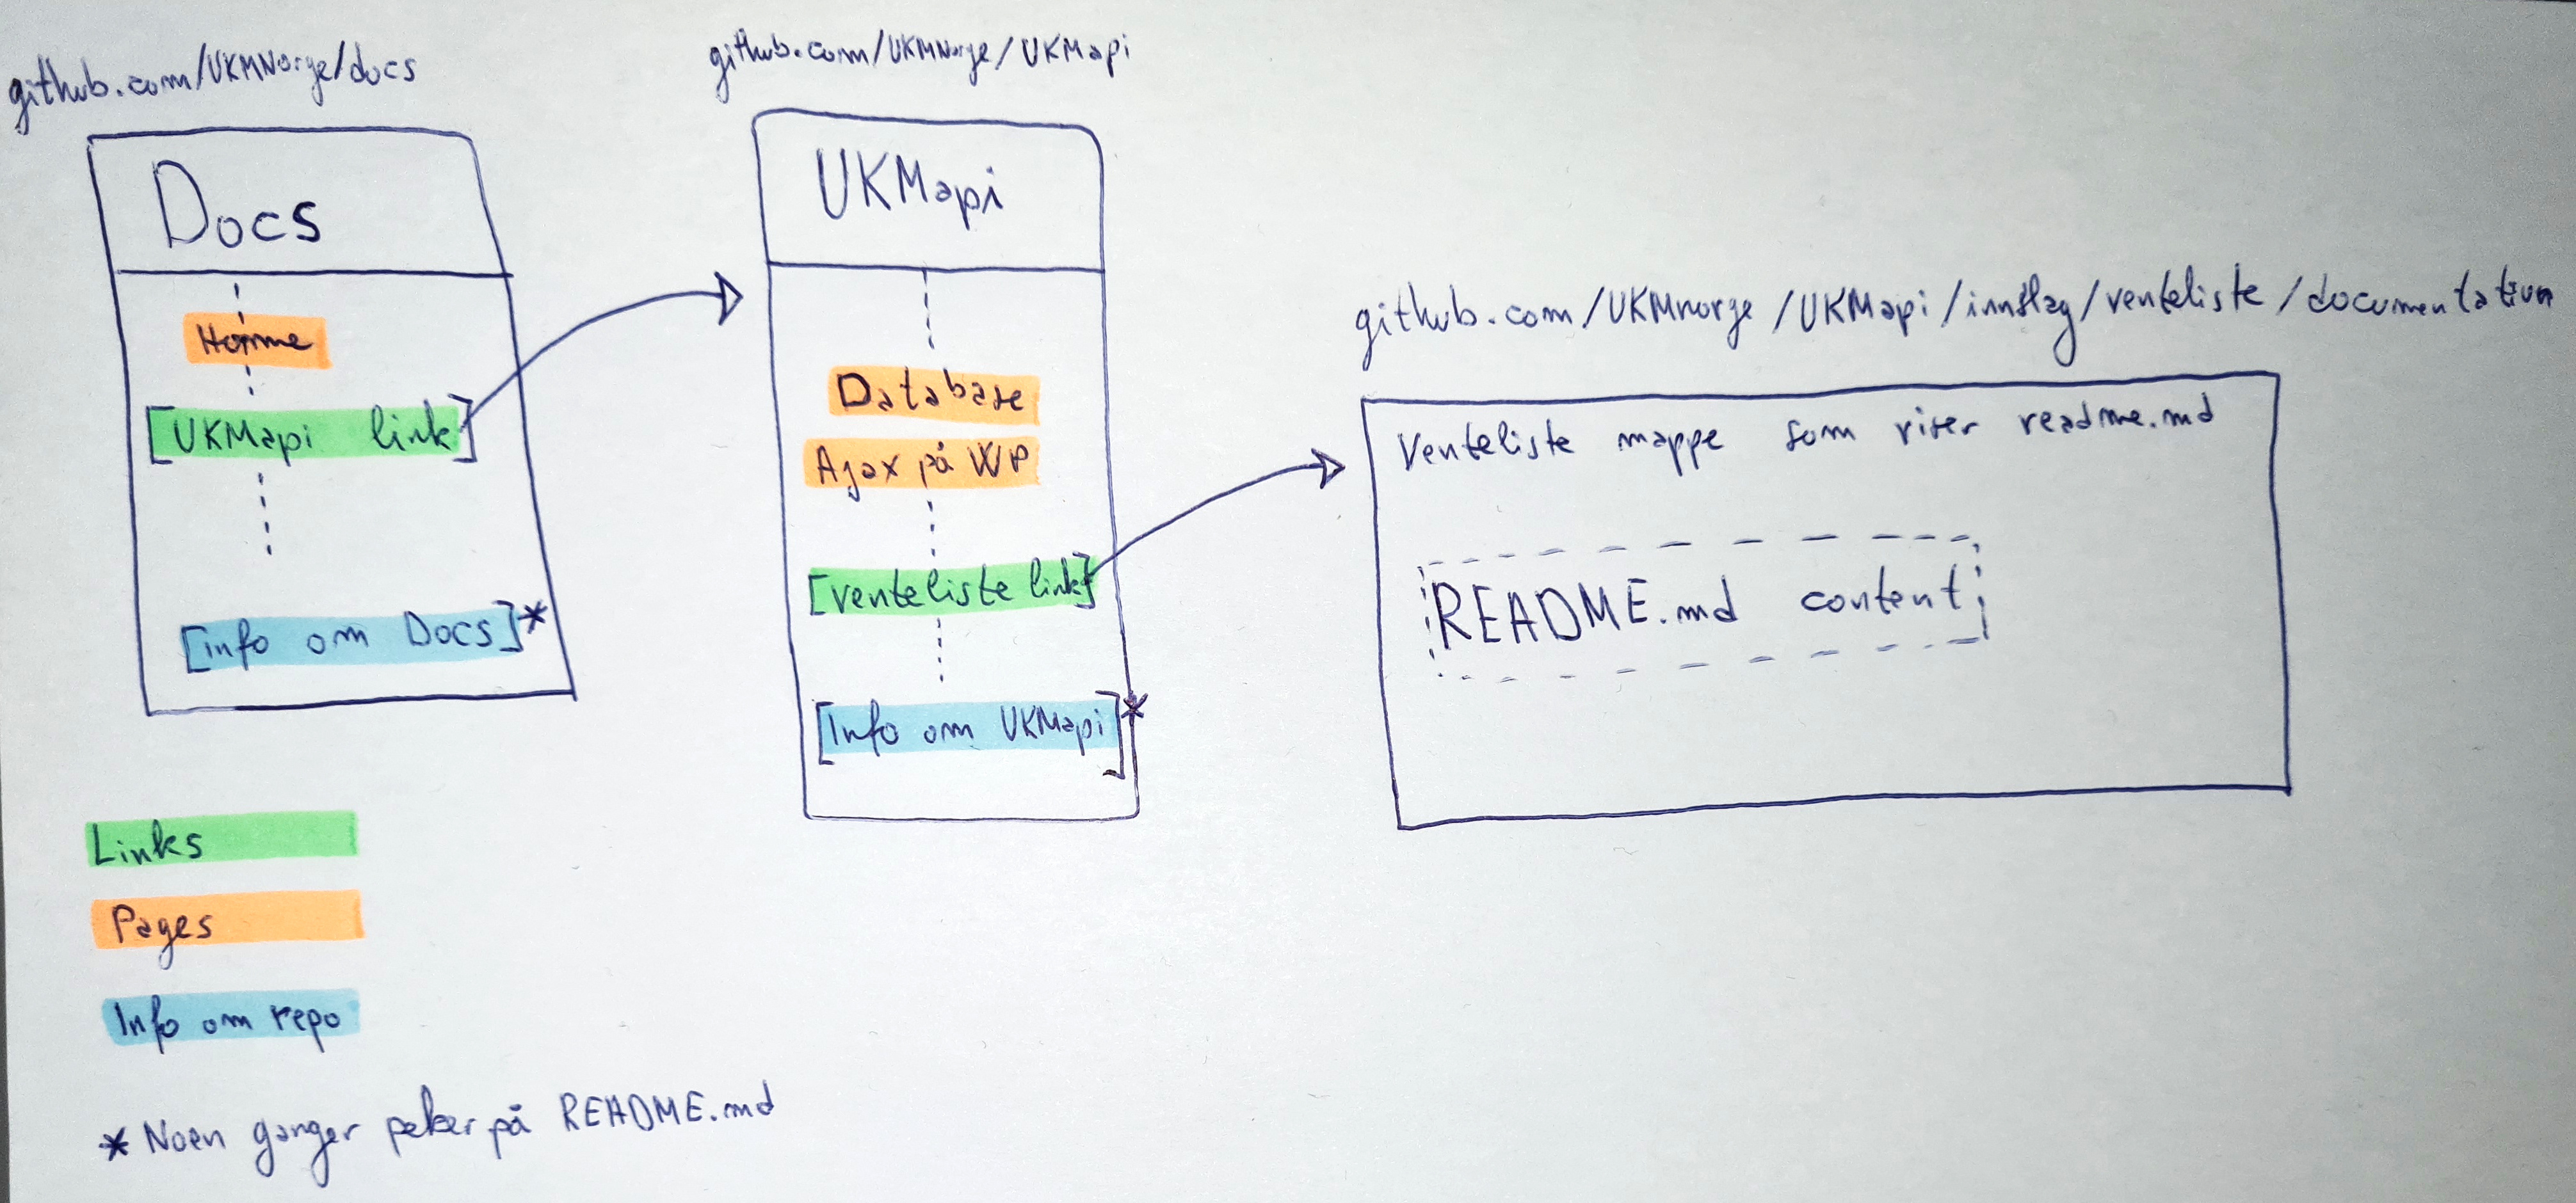 github.com/UKMNorge/docs
Docs
Home
[UKMapi link]
[info om Docs]*
github.com/UKMNorge/UKMapi
UKMapi
Database
Ajax på WP
[venteliste link]
[Info om UKMapi]*
github.com/UKMnorge/UKMapi/innslag/venteliste/documentation
Venteliste mappe som viser readme.md
README.md content
Links
Pages
Info om repo
* Noen ganger peker på README.md